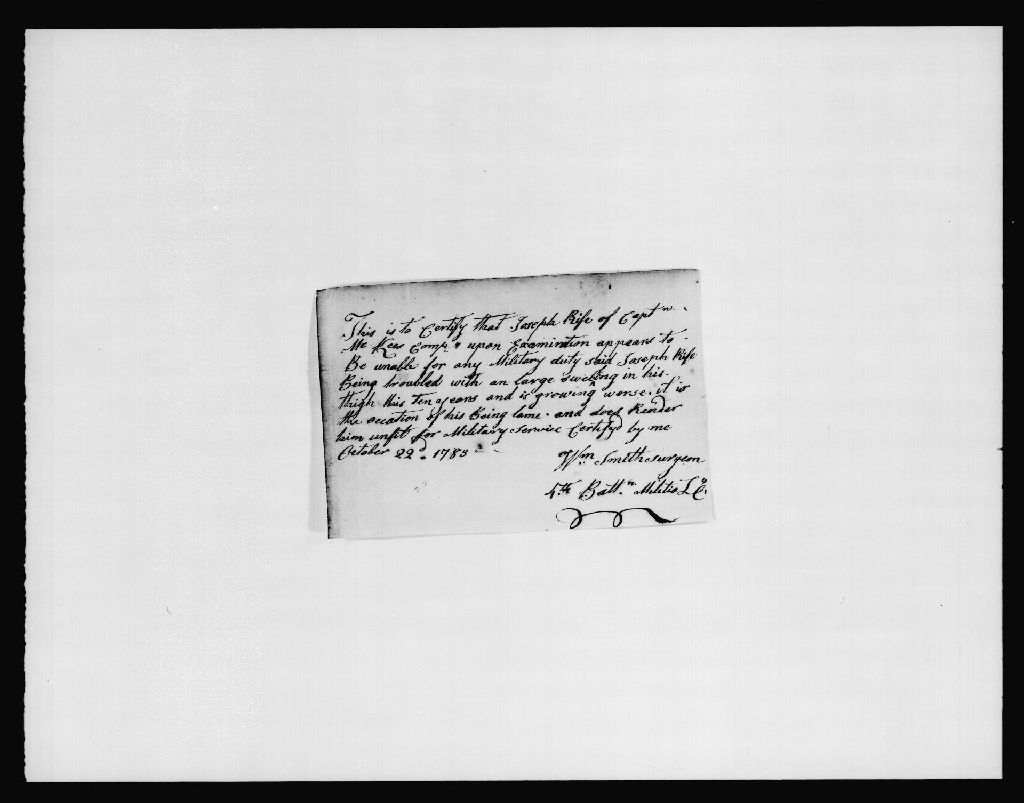 This is to Certify that Joseph Rife of Captn
Mc Kees Compy upon Examination appears to
Be unable for any Military duty said Joseph Rife
Being troubled with an large sweling in his
thigh this ten years and is growing worse. it is
the occation of his Being lame. and does Render
him unfit for Military Service Certifyd by me
October 22d. 1783
Wm Smith surgeon
4th Battn Militia L Co.